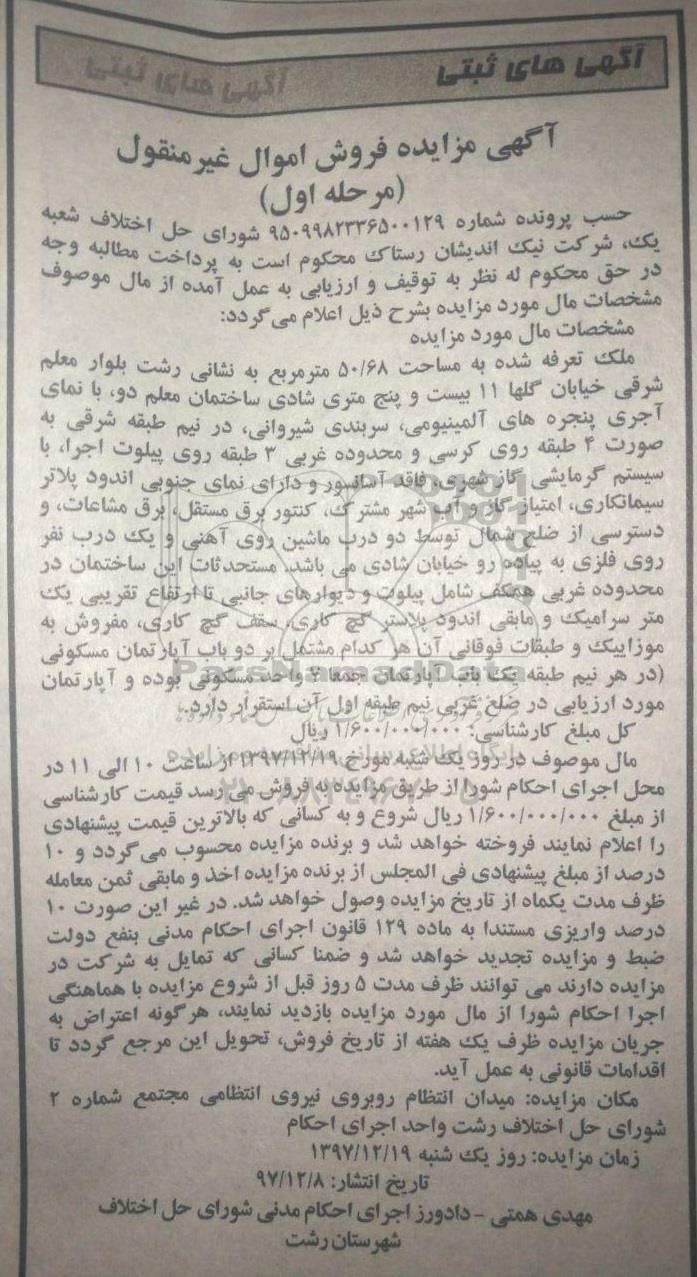 آگهی های ثبتی
آگهی های ثبتی
آگهی مزایده فروش اموال غیرمنقول
(مرحله اول)
حسب پرونده شماره ۹۵۰۹۹۸۲۳۳۶۵۰۰۱۲۹ شورای حل اختلاف شعبه
یک، شرکت نیک اندیشان رستاک محکوم است به پرداخت مطالبه وجه
در حق محکوم له نظر به توقیف و ارزیابی به عمل آمده از مال موصوف
مشخصات مال مورد مزایده بشرح ذیل اعلام می گردد:
مشخصات مال مورد مزایده
ملک تعرفه شده به مساحت ۵۰/۶۸ مترمربع به نشانی رشت بلوار معلم
شرقی خیابان گلها ۱۱ بیست و پنج متری شادی ساختمان معلم دو، با نمای
آجری پنجره های آلمینیومی، سربندی شیروانی، در نیم طبقه شرقی به
صورت ۴ طبقه روی کرسی و محدوده غربی ۳ طبقه روی پیلوت اجرا، با
سیستم گرمایشی گاز شهری، فاقد آسانسور و دارای نمای جنوبی اندود پلاتر
سیمانکاری، امتیاز گاز و آب شهر مشترک، کنتور برق مستقل، برق مشاعات، و
دسترسی از ضلع شمال توسط دو درب ماشین روی آهنی و یک درب نفر
روی فلزی به پیاده رو خیابان شادی می باشد. مستحدثات این ساختمان در
محدوده غربی همکف شامل پیلوت و دیوارهای جانبی تا ارتفاع تقریبی یک
متر سرامیک و مابقی اندود پلاستر گچ کاری، سقف گچ کاری، مفروش به
موزاییک و طبقات فوقانی آن هر کدام مشتمل بر دو باب آپارتمان مسکونی
(در هر نیم طبقه یک باب آپارتمان جمعا ۷ واحد مسکونی بوده و آپارتمان
مورد ارزیابی در ضلع غربی نیم طبقه اول آن استقرار دارد.
کل مبلغ کارشناسی: ۱/۶۰۰/۰۰۰/۰۰۰ ریال
مال موصوف در روز یک شنبه مورخ ۱۳۹۷/۱۲/۱۹ از ساعت ۱۰ الی ۱۱ در
محل اجرای احکام شورا از طریق مزایده به فروش می رسد قیمت کارشناسی
از مبلغ ۱/۶۰۰/۰۰۰/۰۰۰ ریال شروع و به کسانی که بالاترین قیمت پیشنهادی
را اعلام نمایند فروخته خواهد شد و برنده مزایده محسوب می گردد و ۱۰
درصد از مبلغ پیشنهادی فی المجلس از برنده مزایده اخذ و مابقی ثمن معامله
ظرف مدت یکماه از تاریخ مزایده وصول خواهد شد. در غیر این صورت ۱۰
درصد واریزی مستندا به ماده ۱۲۹ قانون اجرای احکام مدنی بنفع دولت
ضبط و مزایده تجدید خواهد شد و ضمنا کسانی که تمایل به شرکت در
مزایده دارند می توانند ظرف مدت ۵ روز قبل از شروع مزایده با هماهنگی
اجرا احکام شورا از مال مورد مزایده بازدید نمایند، هرگونه اعتراض به
جریان مزایده ظرف یک هفته از تاریخ فروش، تحویل این مرجع گردد تا
اقدامات قانونی به عمل آید.
مکان مزایده: میدان انتظام روبروی نیروی انتظامی مجتمع شماره ۲
شورای حل اختلاف رشت واحد اجرای احکام
زمان مزایده: روز یک شنبه ۱۳۹۷/۱۲/۱۹
تاریخ انتشار: ۹۷/۱۲/۸
مهدی همتی - دادورز اجرای احکام مدنی شورای حل اختلاف
شهرستان رشت
ParsNamadData